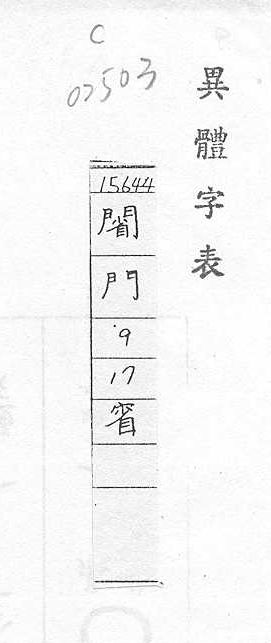 C
02503
異體字表
15644
䦚
門
9
17
省